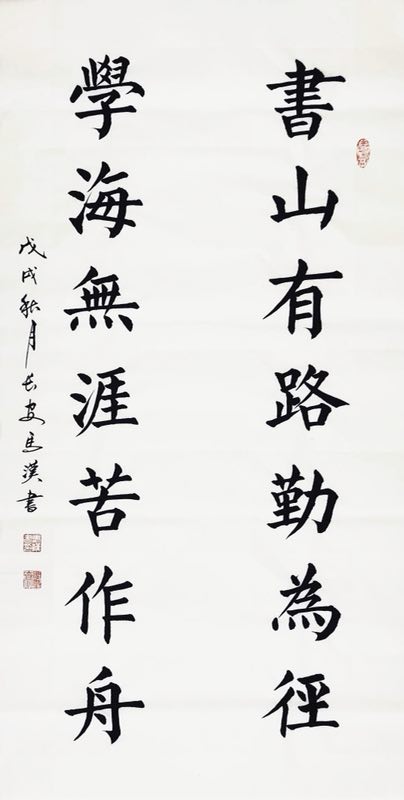 書山有路勤為徑
學海無涯苦作舟
戊戌秋月長安馬漢書